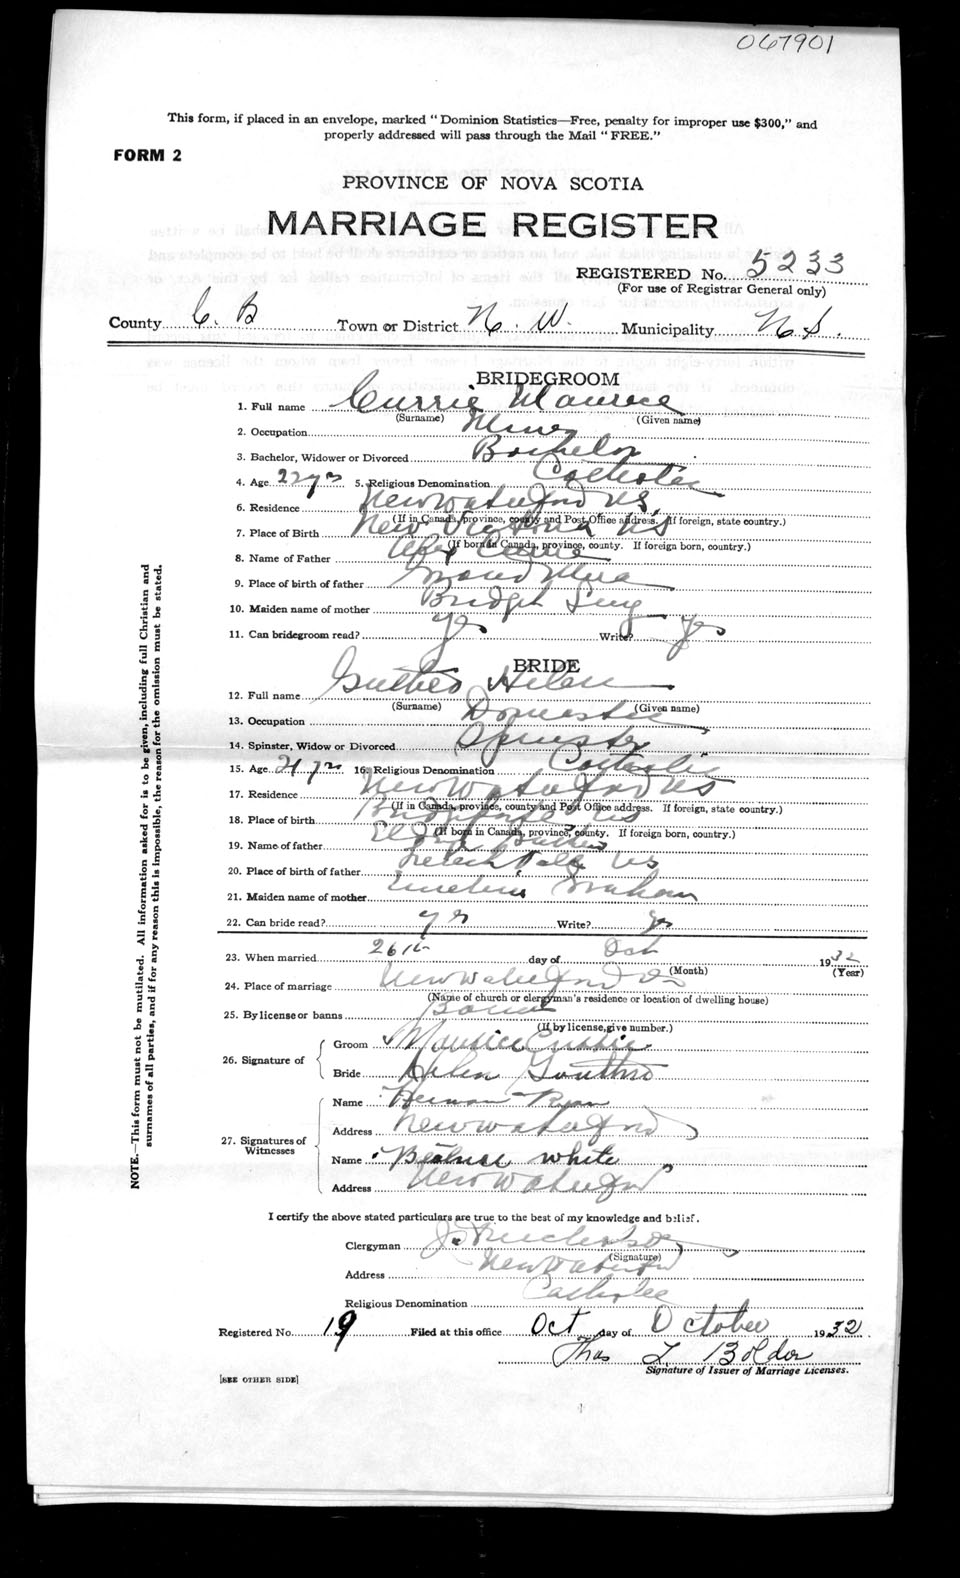 067901
This form, if placed in an envelope, marked "Dominion Statistics—Free, penalty for improper use $300," and
properly addressed will pass through the Mail "FREE."
FORM 2
PROVINCE OF NOVA SCOTIA
MARRIAGE REGISTER
REGISTERED No. 5233
(For use of Registrar General only)
County C. B Town or District N. W. Municipality N S.
BRIDEGROOM
1. Full name Currie Maurice
(Surname) (Given name)
2. Occupation Miner
3. Bachelor, Widower or Divorced Bachelor
4. Age 22 yrs 5. Religious Denomination Catholic
6. Residence New Waterford NS.
(If in Canada, province, county and Post Office address. If foreign, state country.)
7. Place of Birth New Victoria NS
(If born in Canada, province, county. If foreign born, country.)
8. Name of Father Currie
9. Place of birth of father Grand Mira
10. Maiden name of mother Bridget
11. Can bridegroom read? Yes Write? Yes
BRIDE
12. Full name Guthro Helen
(Surname) (Given name)
13. Occupation Domestic
14. Spinster, Widow or Divorced Spinster
15. Age 21 yrs 16. Religious Denomination Catholic
17. Residence New Waterford NS
(If in Canada, province, county and Post Office address. If foreign, state country.)
18. Place of birth NS
(If born in Canada, province, county. If foreign born, country.)
19. Name of father
20. Place of birth of father NS
21. Maiden name of mother Graham
22. Can bride read? yes Write? yes
23. When married 26th day of Oct 1932
(Month) (Year)
24. Place of marriage New Waterford
(Name of church or clergyman's residence or location of dwelling house)
25. By license or banns Banns
(If by license, give number.)
26. Signature of
Groom Maurice Currie
Bride Helen Guthro
27. Signatures of
Witnesses
Name Herman Ryan
Address New Waterford
Name Beatrice White
Address New Waterford
I certify the above stated particulars are true to the best of my knowledge and belief.
Clergyman
(Signature)
Address New Waterford
Religious Denomination Catholic
Registered No. 19 Filed at this office Oct day of October 1932
Thos L Bolder
Signature of Issuer of Marriage Licenses.
[SEE OTHER SIDE]
NOTE.—This form must not be mutilated. All information asked for is to be given, including full Christian and
surnames of all parties, and if for any reason this is impossible, the reason for the omission must be stated.